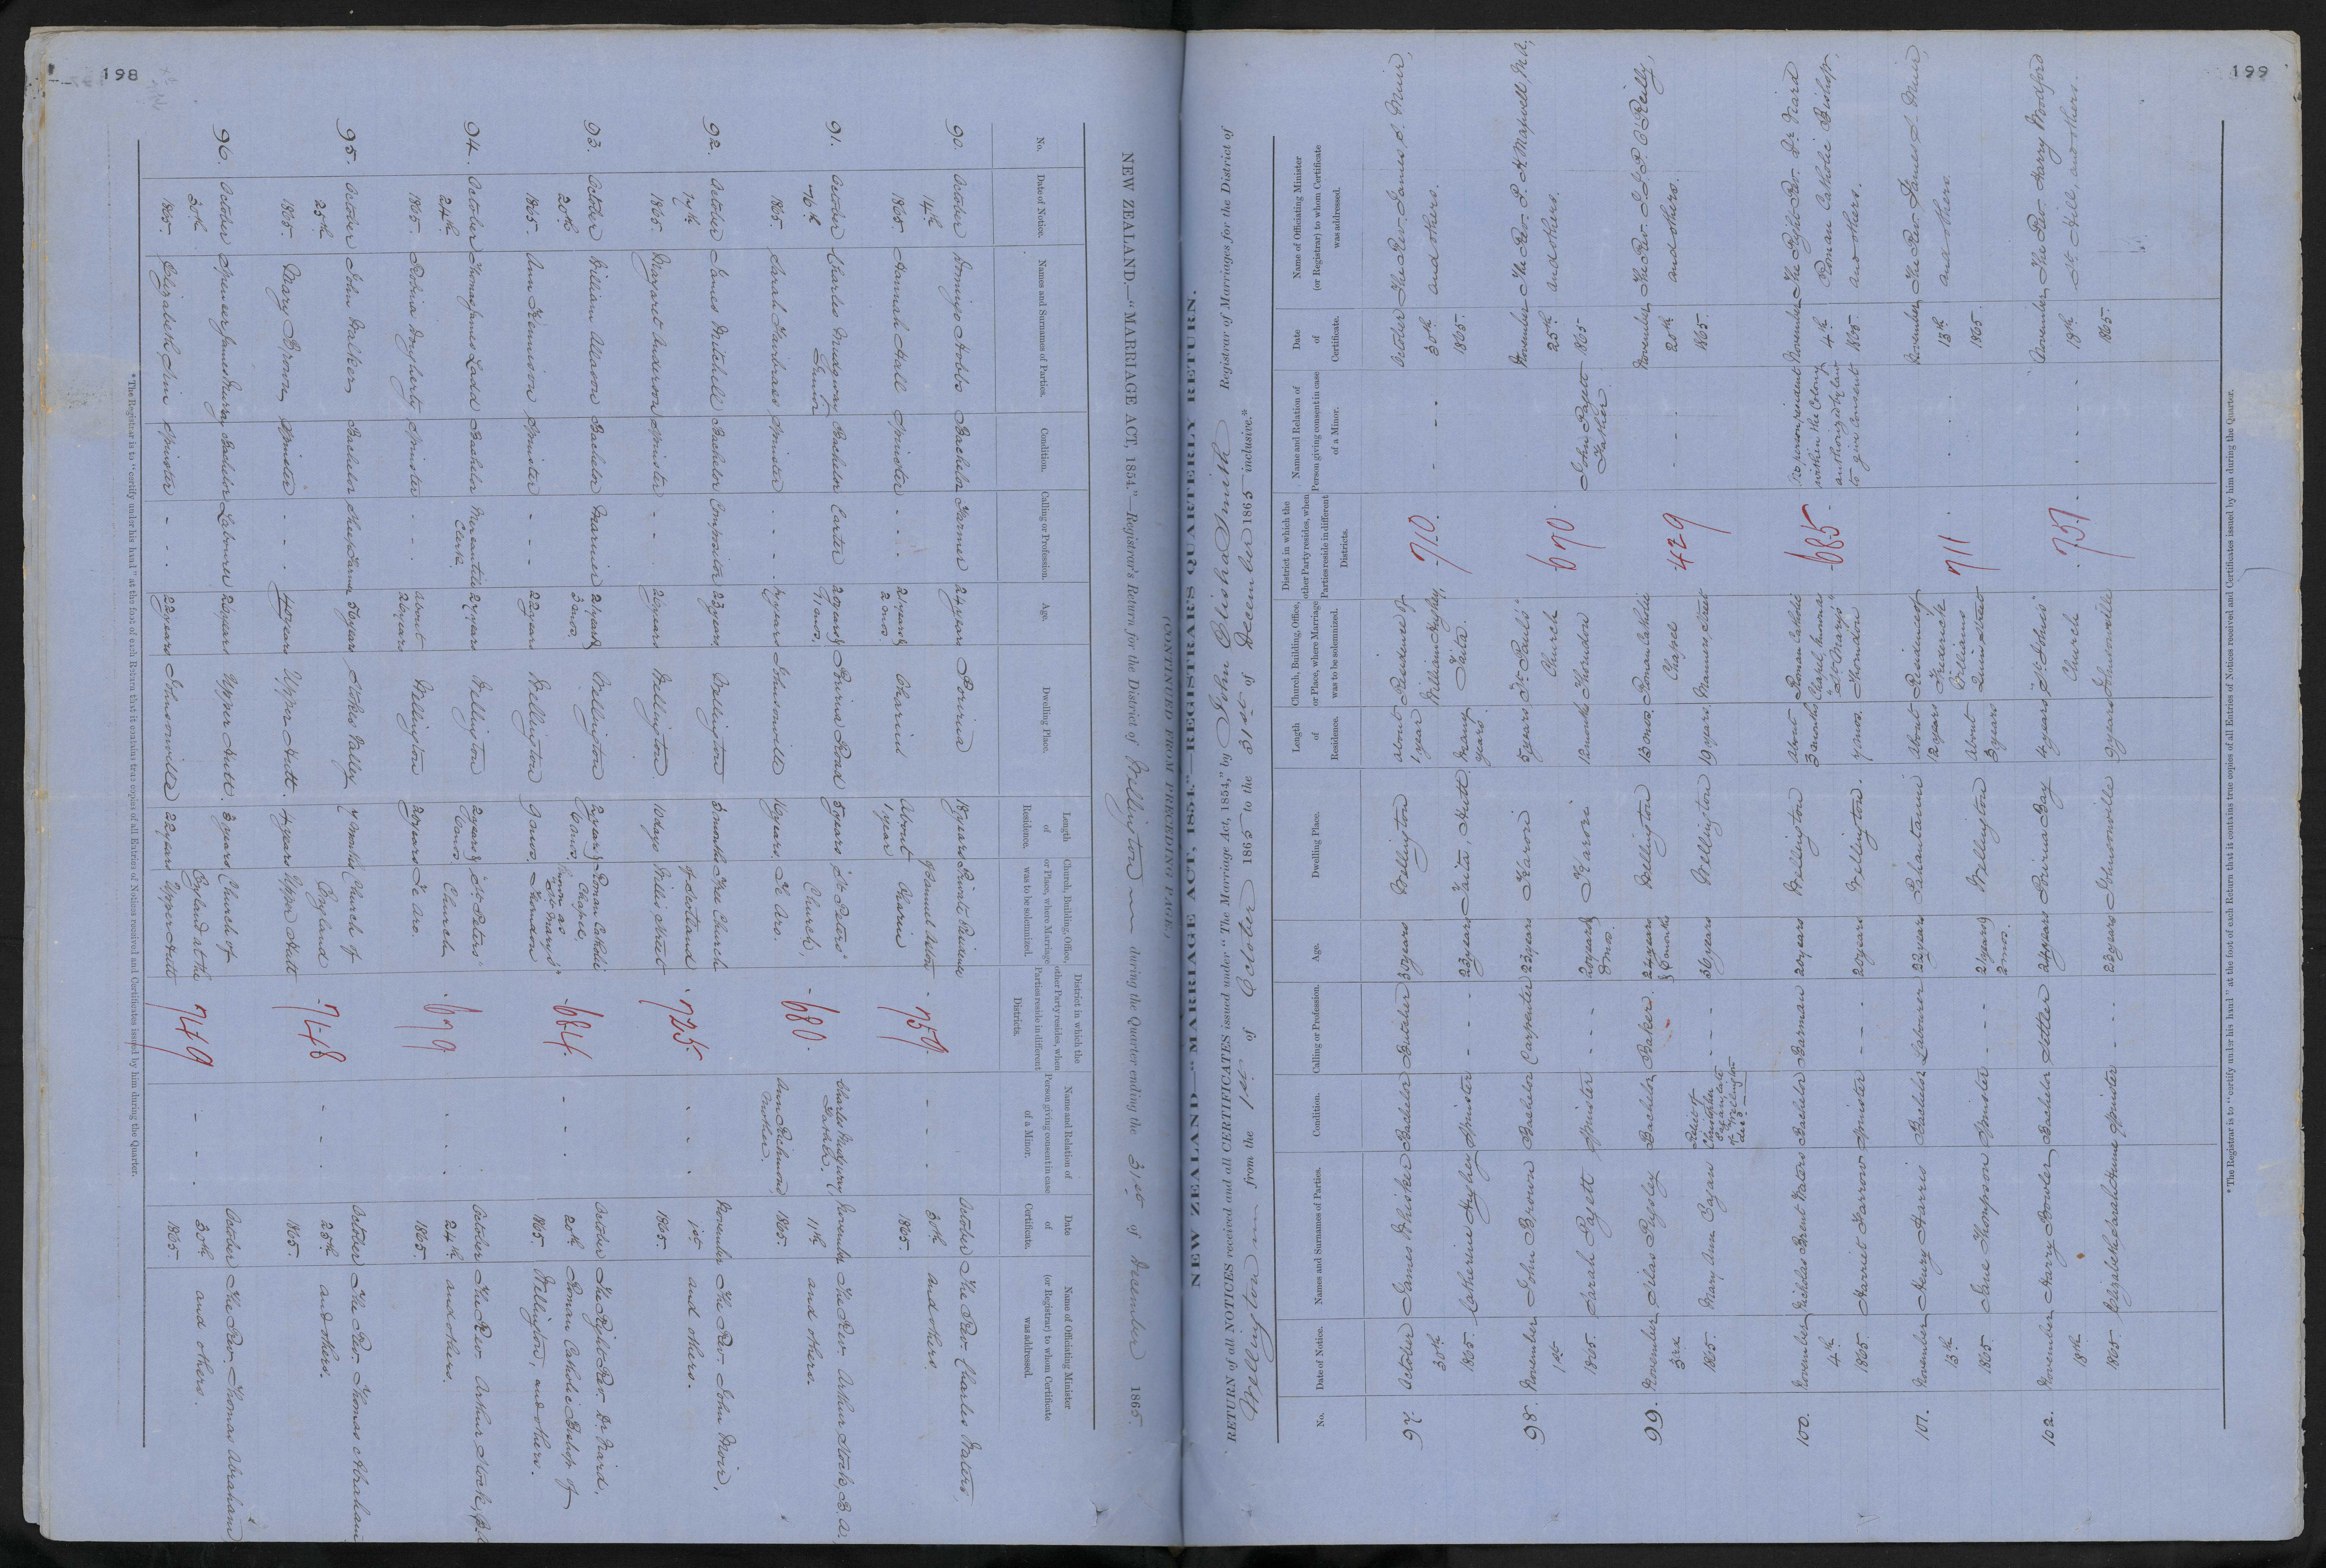 198
NEW ZEALAND.—"MARRIAGE ACT, 1854."—Registrar's Return for the District of Wellington during the Quarter ending the 31st of December 1865.
(CONTINUED FROM PRECEDING PAGE.)
No. Date of Notice. Names and Surnames of Parties. Condition. Calling or Profession. Age. Dwelling Place. Length of Residence. Church, Building, Office, or Place, where Marriage was to be solemnized. District in which the other Party resides, when Parties reside in different Districts. Name and Relation of Person giving consent in case of a Minor. Date of Certificate. Name of Officiating Minister (or Registrar) to whom Certificate was addressed.
90. October Domingo Hobbs Bachelor Farmer 24 years Porirua 18 years Private Residence October The Rev. Charles Waters,
14th of Samuel - 759. - - - 30th and others.
1865. Hannah Hall Spinster - - - 21 years & 2 mos. Oharin About 1 year Oharin 1865.
91. October Charles Mudgway Junior Bachelor Carter 20 years & 9 mos. Porirua Road 5 years "St. Peters" Charles Mudgway November The Rev. Arthur Stock, B.A.
16th Church, - 680. Father. 11th and others.
1865. Sarah Fairhaes Spinster - - - years Johnsonville years Te Aro. Ann Richmond, Mother. 1865.
92. October James Mitchell Bachelor Compositor 23 years. Wellington 3 months Free Church November The Rev. John Moir,
17th of Scotland - 725. - - - 1st and others.
1865. Margaret Anderson Spinster - - 20 years Wellington. 10 days Willis Street 1865.
93. October William Bachelor Mariner 21 years & 3 mos. Wellington 2 years & 6 mos. Roman Catholic October The Right Rev. Dr. Viard,
20th Chapel, known as "St. Mary's" - 684. - - - 20th Roman Catholic Bishop of
1865. Ann Kennison Spinster - - - 22 years Wellington 9 mos. Thorndon 1865. Wellington, and others.
94. October Thomas James Ladd Bachelor Mercantile Clerk 27 years Wellington 2 years & 6 mos. "St. Peters" October The Rev. Arthur Stock, B.A.
24th Church - 679. - - - 24th and others.
1865. Robina Dougherty Spinster - - - About 26 years Wellington 20 years Te Aro. 1865.
95. October John Bachelor 56 years Stokes Valley 7 months Church of October The Rev. Thomas Abraham
25th England - 748 - - - 25th and others.
1865. Mary Brown Spinster - - - 40 years Upper Hutt. 4 years Upper Hutt 1865.
96. October Spencer James Bachelor Labourer 26 years Upper Hutt. 3 years Church of October The Rev. Thomas Abraham
30th England at the 749 - - - 30th and others.
1865. Elizabeth Ann Spinster - - - 22 years Johnsonville 22 years Upper Hutt 1865.
* The Registrar is to "certify under his hand" at the foot of each Return that it contains true copies of all Entries of Notices received and Certificates issued by him during the Quarter.
199
NEW ZEALAND.—"MARRIAGE ACT, 1854."—REGISTRAR'S QUARTERLY RETURN.
RETURN of all NOTICES received and all CERTIFICATES issued under "The Marriage Act, 1854," by John Elisha Smith Registrar of Marriages for the District of
Wellington from the 1st of October 1865 to the 31st of December 1865 inclusive.*
No. Date of Notice. Names and Surnames of Parties. Condition. Calling or Profession. Age. Dwelling Place. Length of Residence. Church, Building, Office, or Place, where Marriage was to be solemnized. District in which the other Party resides, when Parties reside in different Districts. Name and Relation of Person giving consent in case of a Minor. Date of Certificate. Name of Officiating Minister (or Registrar) to whom Certificate was addressed.
97. October James Whisker Bachelor Butcher 30 years Wellington About 1 year Residence of October The Rev. James S. Muir,
30th William Hughey, 710. - - - 30th and others.
1865. Catherine Hughey Spinster - - - 23 years Taita, Hutt. Many years. Taita. 1865.
98. November John Brown Bachelor Carpenter 23 years Karori 5 years "St. Pauls" November The Rev. P. H. Maxwell, M.A.,
1st Church 670. 25th and others.
1865. Sarah Pagett Spinster - - - 20 years & 8 mos. Karori 12 months Thorndon John Pagett Father 1865
99. November Silas Pegley Bachelor Baker. 24 years & 6 months Wellington 13 mos. Roman Catholic November The Rev. J. J. P. O'Reilly,
3rd Chapel 429 - - - 20th and others.
1865. Mary Ann Eagan Relict of Christopher Eagan, late of Wellington decd. - - - 36 years Wellington 19 years. Manners Street 1865.
100. November Nicholas Brent Waters Bachelor Barman 20 years Wellington About 3 months Roman Catholic No person resident November The Right Rev. Dr. Viard
4th Chapel, known as 685 - within the Colony 4th Roman Catholic Bishop,
1865. Harriet Farrow Spinster - - - 20 years Wellington. 7 mos. "St. Mary's" Thorndon authorized by law to give consent 1865. and others.
101. November Henry Harris Bachelor Labourer 22 years Pahautanui About 12 years Residence of November The Rev. James S. Muir,
13th Frederick Williams 711. - - - 13th and others.
1865. Jane Thompson Spinster - - - 21 years & 2 mos. Wellington About 3 years Street 1865.
102. November Harry Bowler Bachelor Settler 24 years Porirua Bay 4 years "St. Johns" November The Rev. Harry Woodford
18th Church 757. - - - 18th St. Hill, and others.
1865. Elizabeth Sarah Spinster - - - 23 years Johnsonville 9 years Johnsonville 1865.
* The Registrar is to "certify under his hand" at the foot of each Return that it contains true copies of all Entries of Notices received and Certificates issued by him during the Quarter.